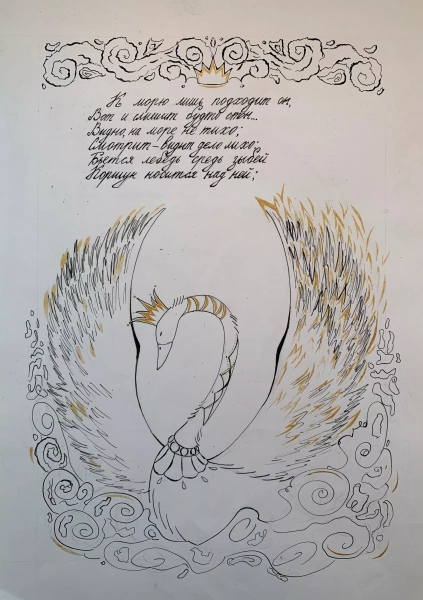 К морю лишь подходит он,
Вот и слышит будто стон...
Видно, на море не тихо;
Смотрит - видит дело лихо:
Бьется лебедь средь зыбей
Коршун носится над ней;